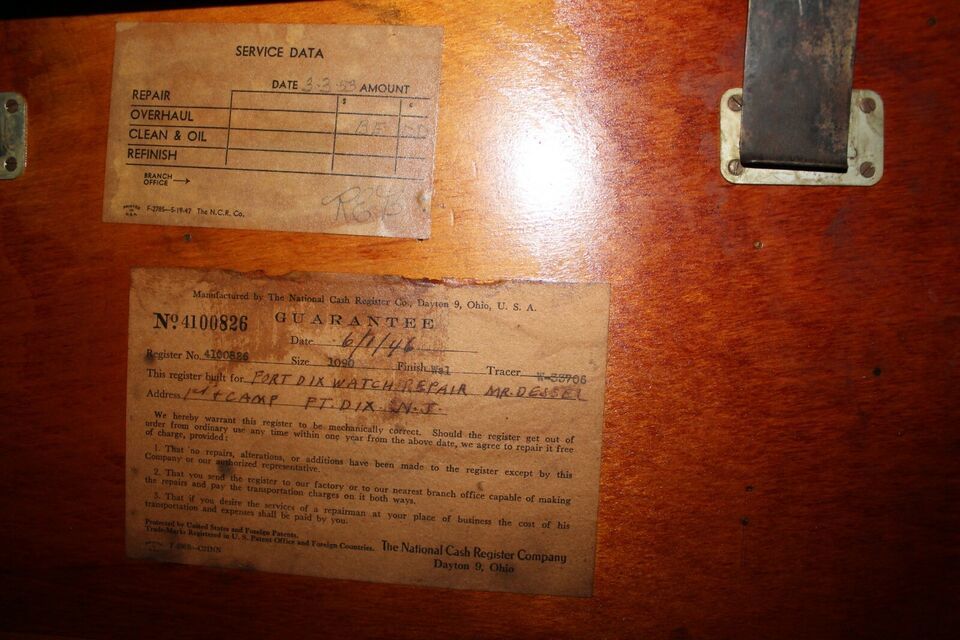 SERVICE DATA
DATE 3-3-53 AMOUNT
REPAIR $ c
OVERHAUL
CLEAN & OIL
REFINISH
BRANCH
OFFICE →
PRINTED
IN
U.S.A. F-2785—5-19-47 The N.C.R. Co.
Manufactured by The National Cash Register Co., Dayton 9, Ohio, U. S. A.
No. 4100826 GUARANTEE
Date 6/1/46
Register No. 4100826 Size 1090 Finish Wal Tracer W-33706
This register built for FORT DIX WATCH REPAIR MR. DESSEL
Address 1st & CAMP FT. DIX. N.J.
We hereby warrant this register to be mechanically correct. Should the register get out of
order from ordinary use any time within one year from the above date, we agree to repair it free
of charge, provided:
1. That no repairs, alterations, or additions have been made to the register except by this
Company or our authorized representative.
2. That you send the register to our factory or to our nearest branch office capable of making
the repairs and pay the transportation charges on it both ways.
3. That if you desire the services of a repairman at your place of business the cost of his
transportation and expenses shall be paid by you.
Protected by United States and Foreign Patents.
Trade-Marks Registered in U. S. Patent Office and Foreign Countries. The National Cash Register Company
Dayton 9, Ohio